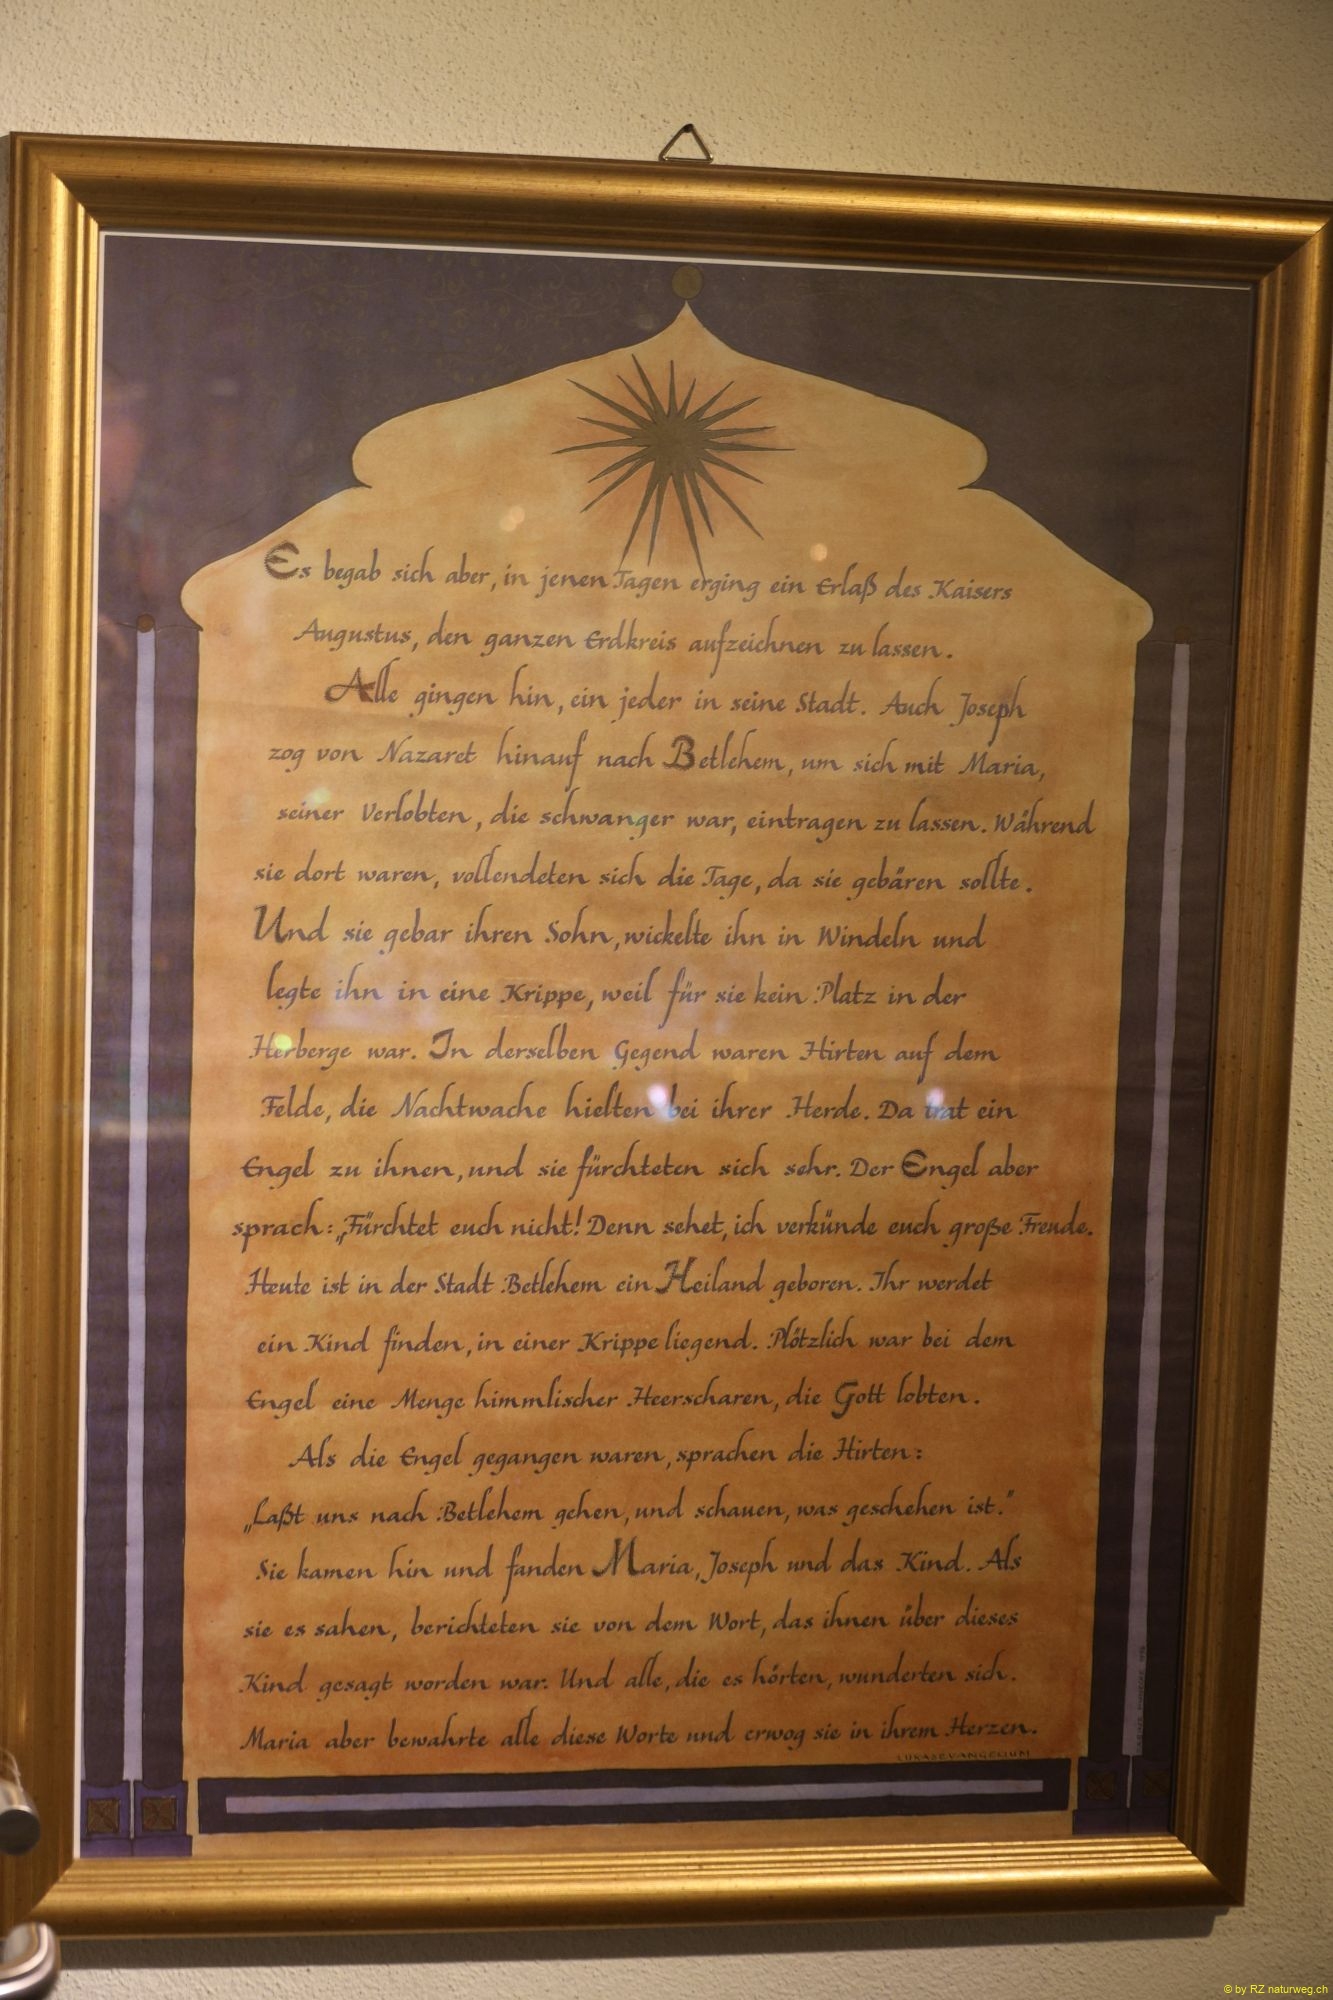 Es begab sich aber, in jenen Tagen erging ein Erlaß des Kaisers
Augustus, den ganzen Erdkreis aufzeichnen zu lassen.
Alle gingen hin, ein jeder in seine Stadt. Auch Joseph
zog von Nazaret hinauf nach Betlehem, um sich mit Maria,
seiner Verlobten, die schwanger war, eintragen zu lassen. Während
sie dort waren, vollendeten sich die Tage, da sie gebären sollte.
Und sie gebar ihren Sohn, wickelte ihn in Windeln und
legte ihn in eine Krippe, weil für sie kein Platz in der
Herberge war. In derselben Gegend waren Hirten auf dem
Felde, die Nachtwache hielten bei ihrer Herde. Da trat ein
Engel zu ihnen, und sie fürchteten sich sehr. Der Engel aber
sprach: „Fürchtet euch nicht! Denn sehet, ich verkünde euch große Freude.
Heute ist in der Stadt Betlehem ein Heiland geboren. Ihr werdet
ein Kind finden, in einer Krippe liegend. Plötzlich war bei dem
Engel eine Menge himmlischer Heerscharen, die Gott lobten.
Als die Engel gegangen waren, sprachen die Hirten:
„Laßt uns nach Betlehem gehen, und schauen, was geschehen ist.“
Sie kamen hin und fanden Maria, Joseph und das Kind. Als
sie es sahen, berichteten sie von dem Wort, das ihnen über dieses
Kind gesagt worden war. Und alle, die es hörten, wunderten sich.
Maria aber bewahrte alle diese Worte und erwog sie in ihrem Herzen.
LUKASEVANGELIUM
© by RZ naturweg.ch